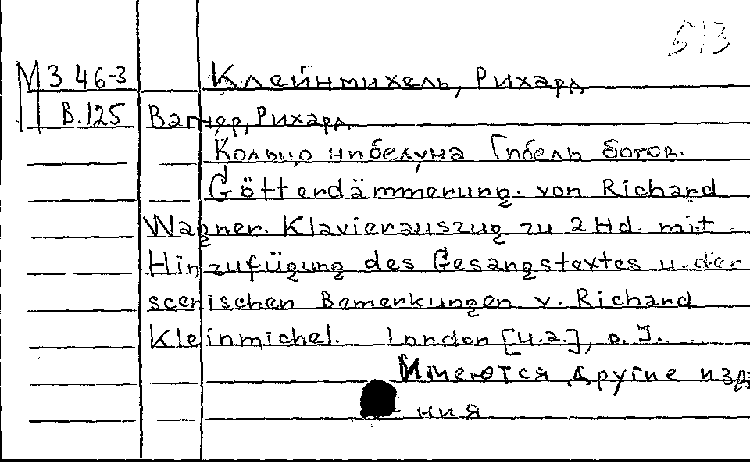 513
М З 46-3 Клейнмихель, Рихард
В.125 Вагнер, Рихард
Кольцо нибелунга Гибель богов.
Götterdämmerung. von Richard
Wagner. Klavierauszug zu 2 Hd. mit
Hinzufügung des Gesangstextes u. der
scenischen Bemerkungen v. Richard
Kleinmichel. London [u.a.], o. J.
Имеются другие изда
ния